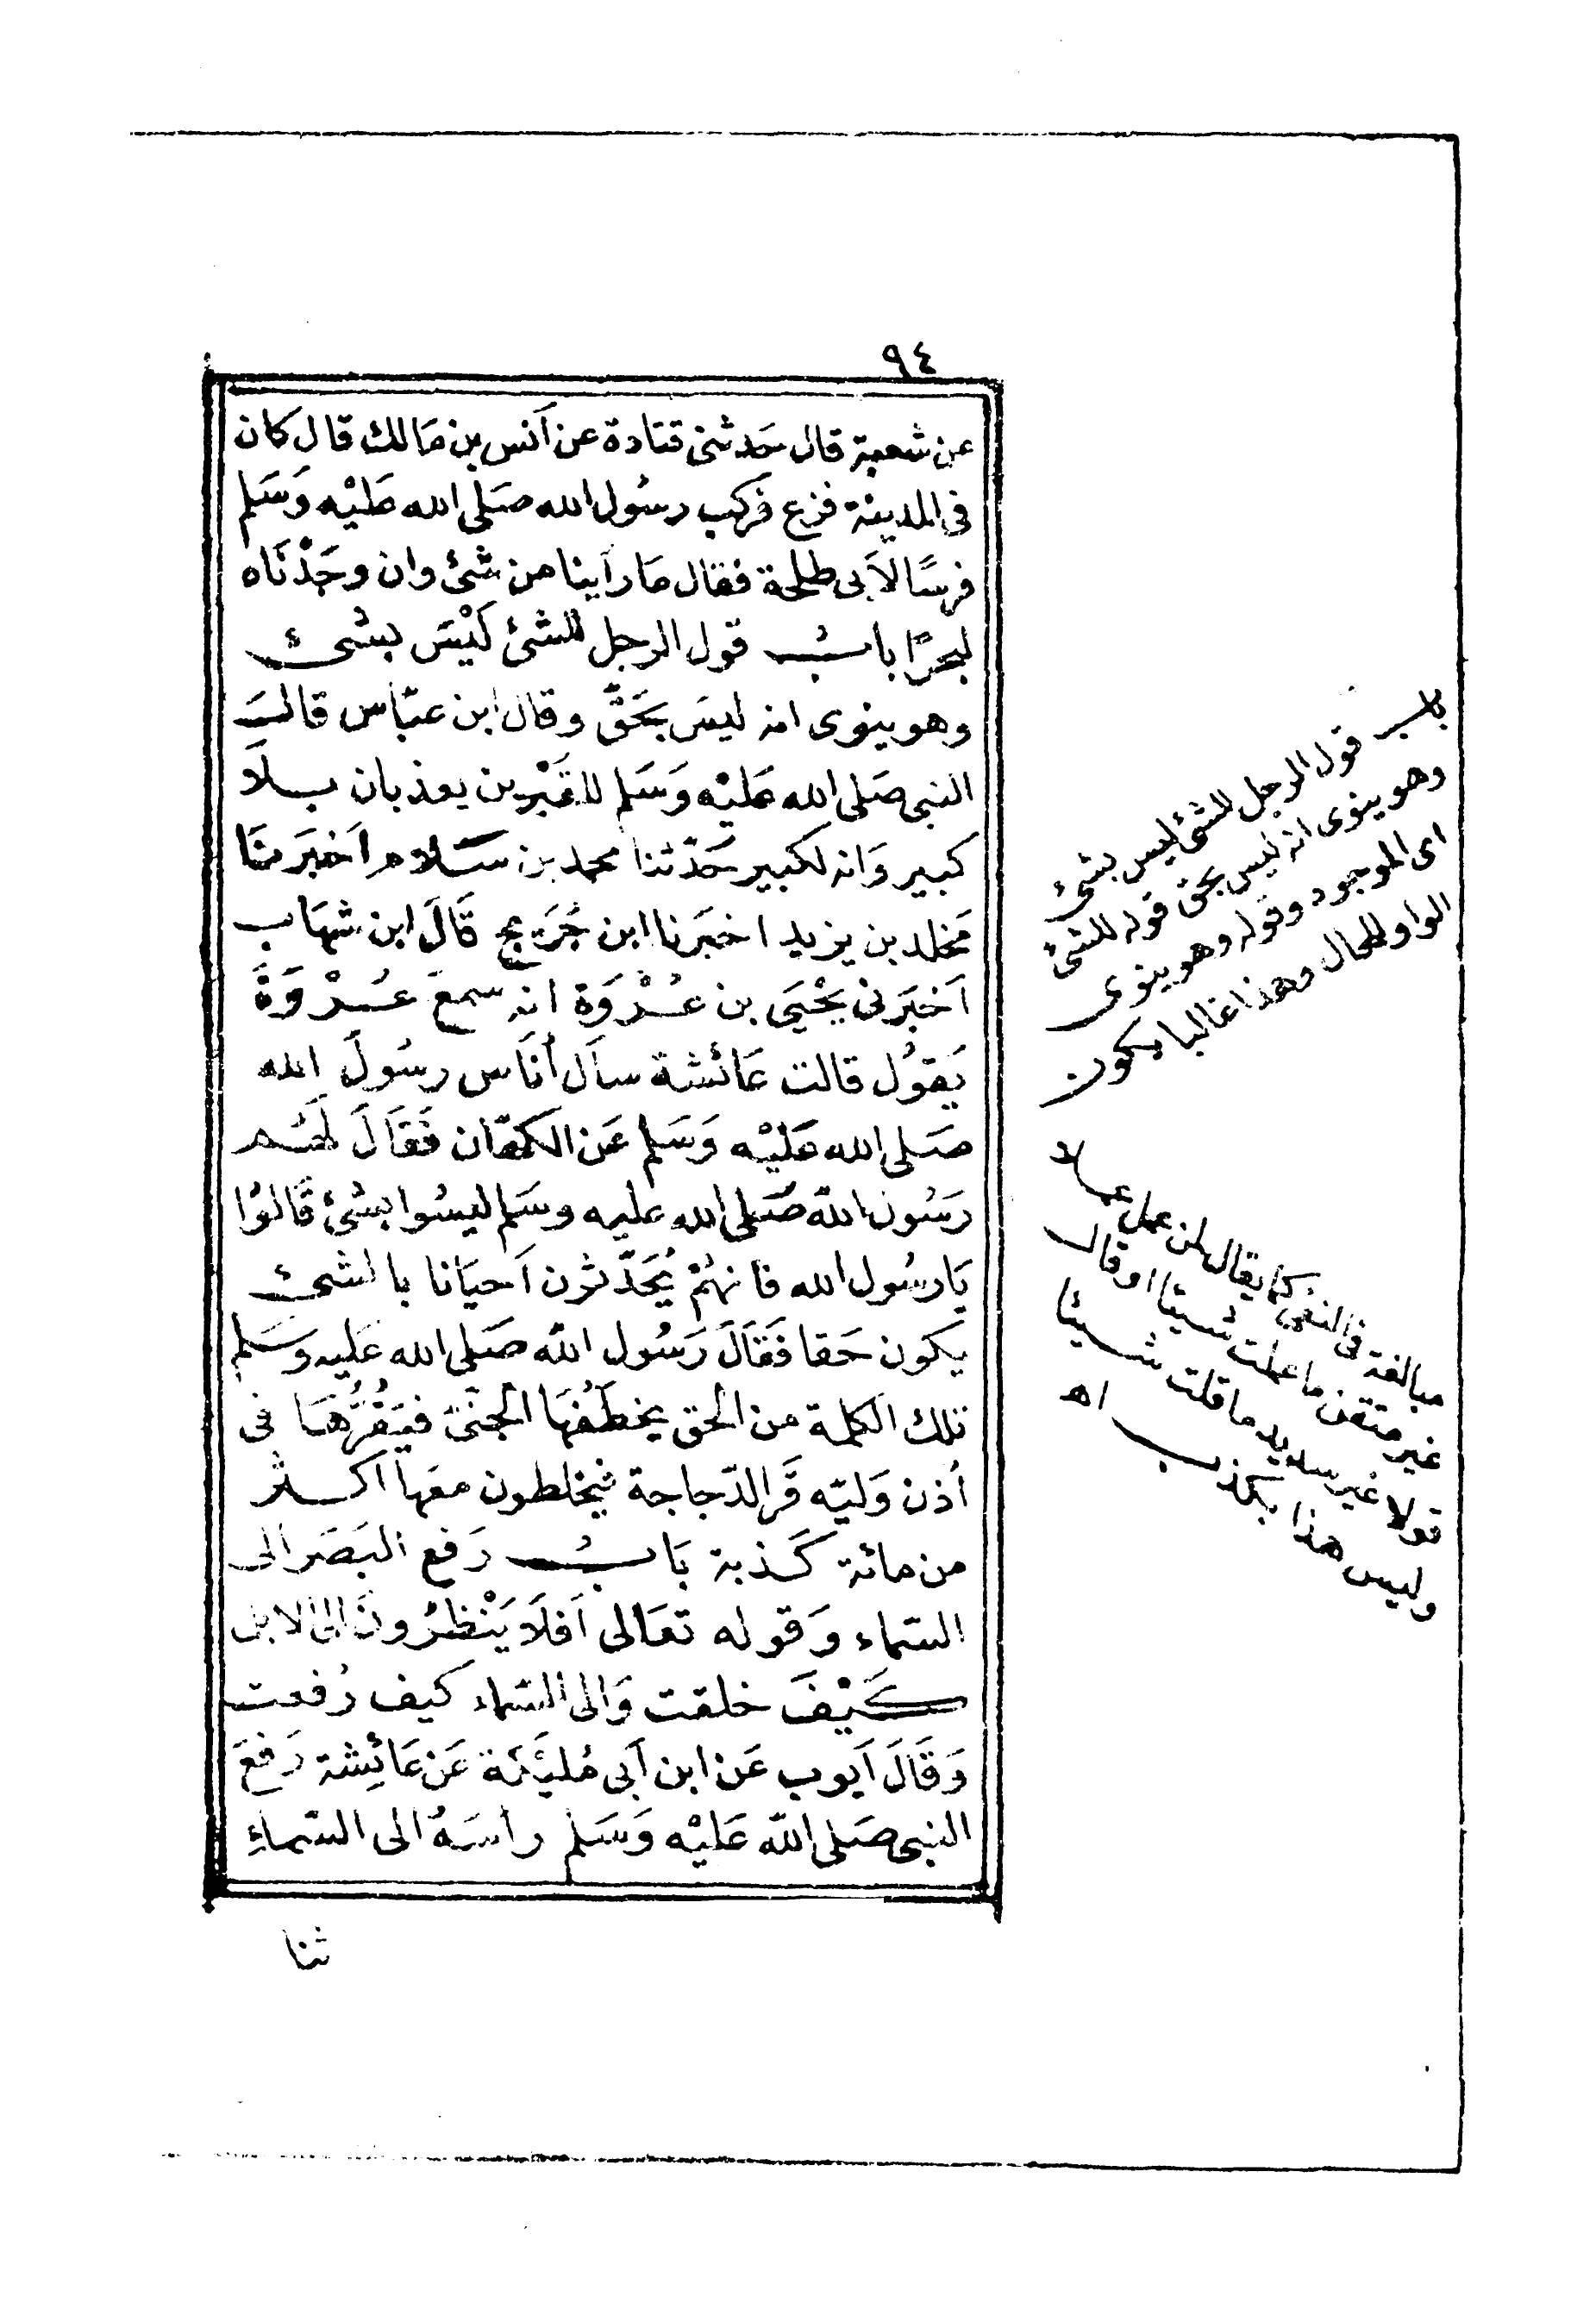 ٩٤
عن شعبة قال حَدثنى قتادة عن أنس بن مَالك قال كان
فى المدينة فزع فركب رسُول الله صَلى الله عَليْه وَسَلم
فرسًا لاَبى طلحة فقال مَا رأينا من شئ وان وجَدْنَاه
لبحرًا بابُ قول الرجل للشئ لَيْسَ بشئ
وهو ينوى انه ليسَ بحَقّ وقال ابن عبّاس قالَ
النبى صَلى الله عَليْه وَسَلم للقَبْرين يعذبان بلاَ
كبير وَانه لكبير حَدّثنا محمد بن سَلام اَخبَرَنَا
مَخلد بن يزيد اخبَرنا ابن جُرَيج قَالَ ابن شهَاب
اَخبَرنى يَحْيَى بن عُرْوَة انه سمعَ عُرْوَةَ
يَقوُل قالت عَائشة سأَل أنَاس رسُولَ الله
صَلى الله عَليْه وَسَلم عَن الكهّان فَقَالَ لَهُم
رَسُول اللّه صَلى الله عليه وسَلم ليسُوا بشئ قَالوُا
يَا رسُول الله فانهُمْ يُحَدّثون اَحيَانا بالشئ
يكون حَقا فَقَالَ رَسُول اللّه صَلى الله عَليه وَسَلم
تلك الكلمة من الحق يخطَفُهَا الجنّى فيَقُرُّهَا فى
أذن وَليّه قَرّ الدّجاجة فيخلطون معَها اكثر
من مائة كَذبة بَابُ رَفع البَصَر الى
السّماء وَقوله تعَالى اَفلاَ يَنْظرُونَ الى الابل
كَيْفَ خلقت وَالى السّماء كيف رُفعت
وَقَالَ اَيوب عَن ابن اَبى مُليْكَة عَن عَائِشة رَفعَ
النبى صَلى اللّه عَليْه وَسَلم رأسَهُ الى السّماءِ
ثنا
باب قول الرجل للشئ ليس بشئ
وهو ينوى انه ليس بحق قوله للشئ
اى الموجود وقوله وهو ينوى
الواو للحال وهذا غالبا يكون
مبالغة فى النفى كما يقال لمن عمل عملا
غير متقن ما عملت شيئا او قال
قولا غير سديد ما قلت شيئا
وليس هذا بكذب اه